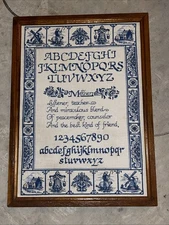 ABCDEFGHI
JKLMNOPQRS
TUVWXYZ
Mother
Listener, teacher
And miraculous blend
Of peacemaker, counselor
And the best kind of friend.
1234567890
abcdefghijklmnopqrst
uvwxyz